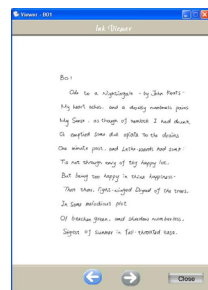 Viewer - B01
Ink Viewer
B01
Ode to a Nightingale - by John Keats -
My heart aches, and a drowsy numbness pains
My Sense, as though of hemlock I had drunk
Or emptied some dull opiate to the drains
One minute past, and Lethe-wards had sunk:
Tis not through envy of thy happy lot,
But being too happy in thine happiness-
That thou, light-winged Dryad of the trees,
In Some melodious plot
Of beechen green, and shadows numberless,
Singest of summer in full-throated ease.
Close